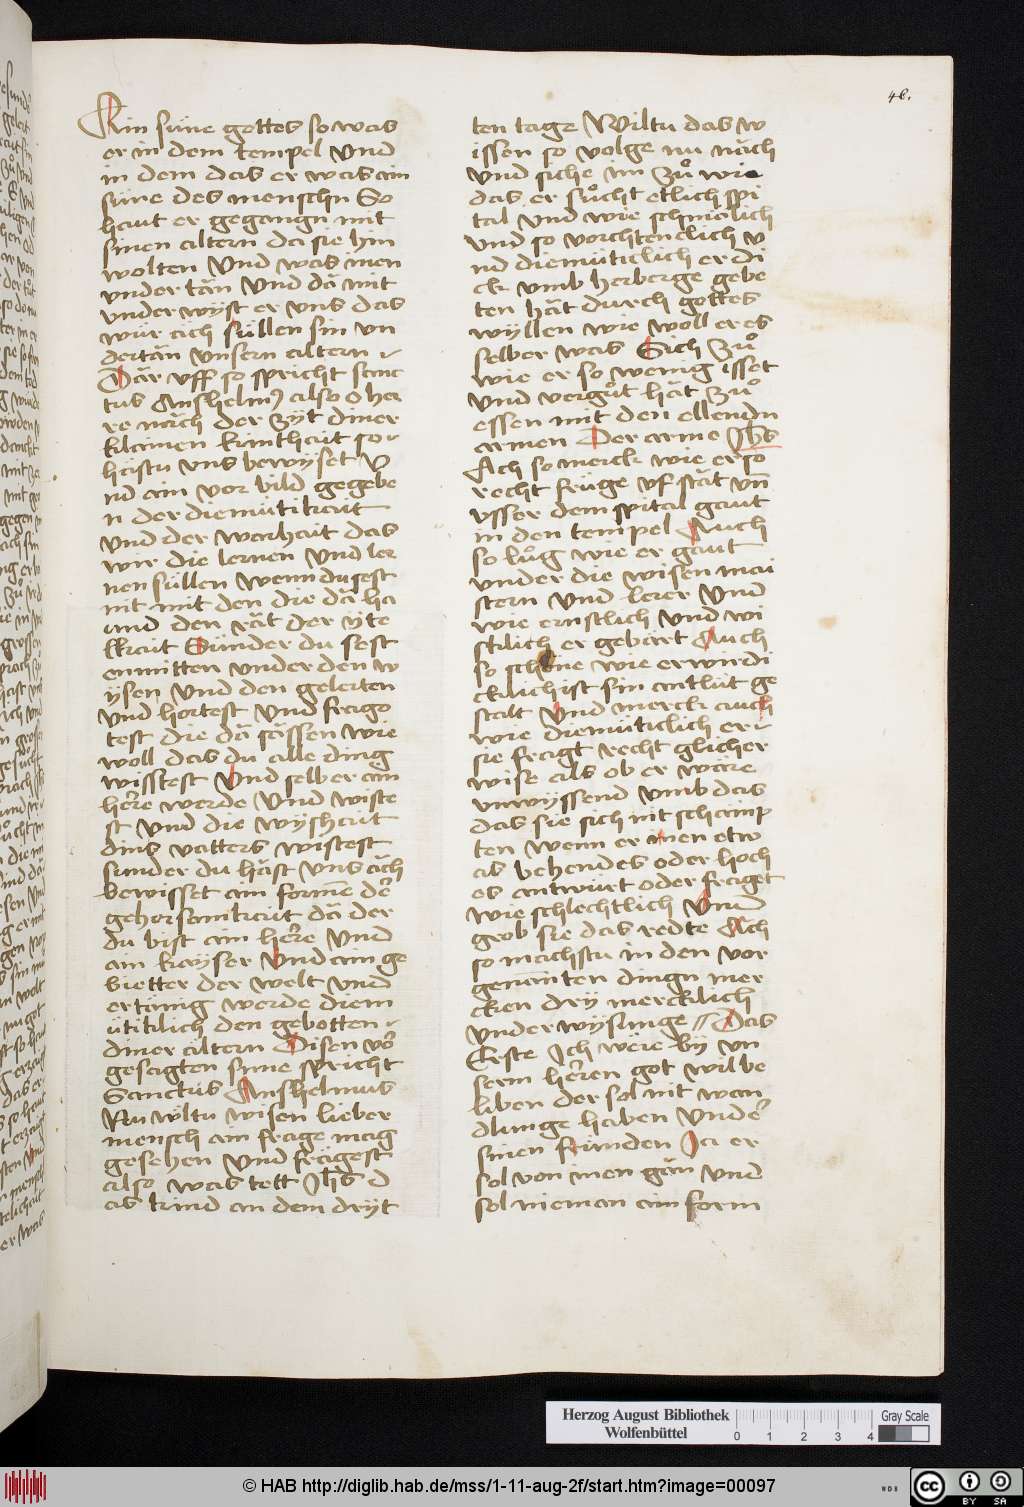 46.
Ain süne gottes so was
er in dem tempel Vnd
in dem das er was ain
süne des menschn So
haut er gegangn mit
sinen altern da sie hin
wolten Vnd was inen
vndertän Vnd dä mit
vnder wyst er vns das
wür äch süllen sin vn
dertän vnsern altern
Där vff so spricht sanc
tus Anshelmus also o her
re näch der zyt diner
klainen kinthait so
hästu vns bewyset v
nd ain vor bild gegebe
n der diemütikait
vnd der warhait das
wir die lernen Vnd ler
nen süllen wenn du sest
nit mit den die dä ha
und den rät der yte
lkait Sunder du sest
enmitten vnder den w
ysen Vnd den gelerten
vnd hortest Vnd frago
test die dä sässen wie
woll das du alle ding
wisstest Vnd selber ain
herre werde Vnd wiste
st Vnd die wyshait
dins vatters wistest
sunder du häst vns äch
bewisset ain forme der
gehorsamkait dä der
du bist ain herre Vnd
ain kayser Vnd ain ge
bietter der welt vnd
ertänig werde diem
ütiklich den gebotten
diner ältern Disen vor
gesagten sinne spricht
Sanctus Anshelmus
Nu wiltu wisen lieber
mensch ain frage mag
gesehen Vnd frägest
also was tett Jhs d
as kind an dem dryt
ten tage Wiltu das w
issen so volge nu näch
vnd siche im zů wie
das er sůcht etlich spi
tal Vnd wie schmälich
vnd so vorchtenclich v
nd diemüticlich er di
ck vmb herberge gebe
ten hät durch gottes
wyllen wie woll er es
selber was Sich zů
wie er so wenig isset
vnd vergůt hät zů
essen mit den ellendn
armen Der arme Jhs
Ach so merck wie er so
recht früge vf stät vn
vsser dem spital gaut
in den tempel Auch
so lůg wie er gaut
vnder die wisen mai
stern Vnd lerer Vnd
wie ernstlich Vnd wi
stlich er gebärt Auch
so schöne wie erwirdi
cklich ist sin antlüt ge
stalt Vnd merck auch
wie diemüticlich er
sie fragt recht glicher
wise als ob er wäre
vnwyssend vmb das
das sie sich nit schamp
ten wenn er inen etw
as behendes oder hoch
es antwürt oder fraget
wie schlechtlich Vnd
grob sie das redte Ach
so machstu in den vor
genanten dingn mer
cken dry mercklich
vnderwysunge // Das
Erste Ich wele by vn
serm herren got wil be
liben der sol nit wan
dlunge haben Vnder
sinen frunden Ja er
sol von inen gän vnd
sol nieman ain form
Herzog August Bibliothek
Wolfenbüttel
0 1 2 3 4
Gray Scale
© HAB http://diglib.hab.de/mss/1-11-aug-2f/start.htm?image=00097
WDB
cc BY SA